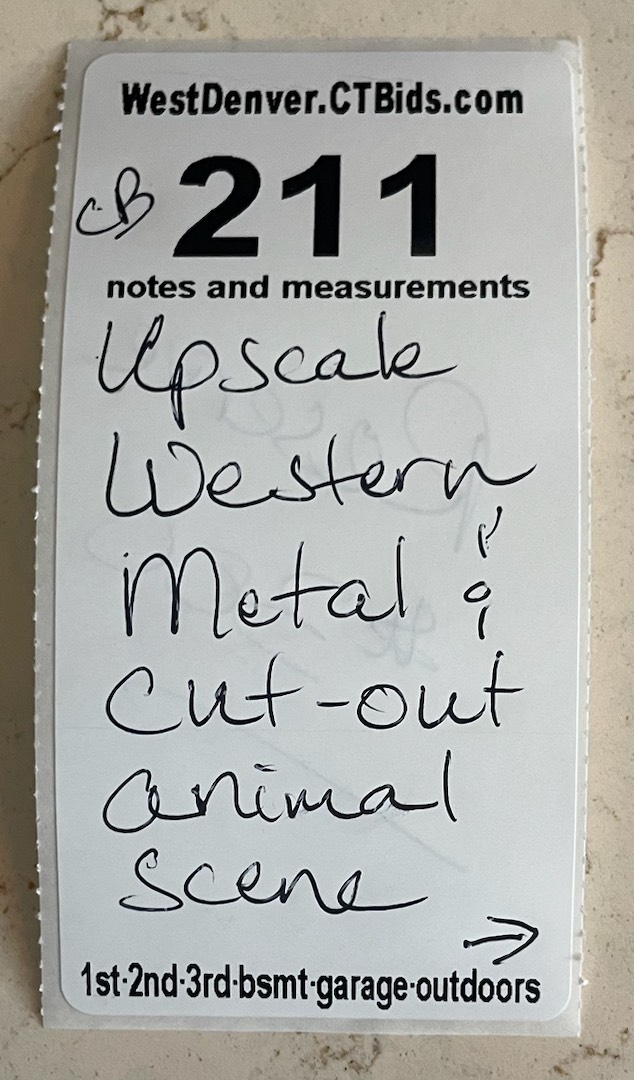 WestDenver.CTBids.com
CB 211
notes and measurements
Upscale
Western
Metal &
Cut-out
animal
Scene
→
1st·2nd·3rd·bsmt·garage·outdoors